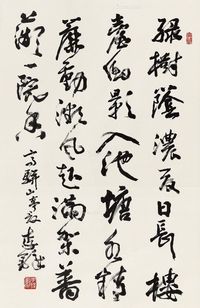 綠樹蔭濃夏日長樓
臺倒影入池塘水精
簾動微風起滿架薔
薇一院香
高駢山亭